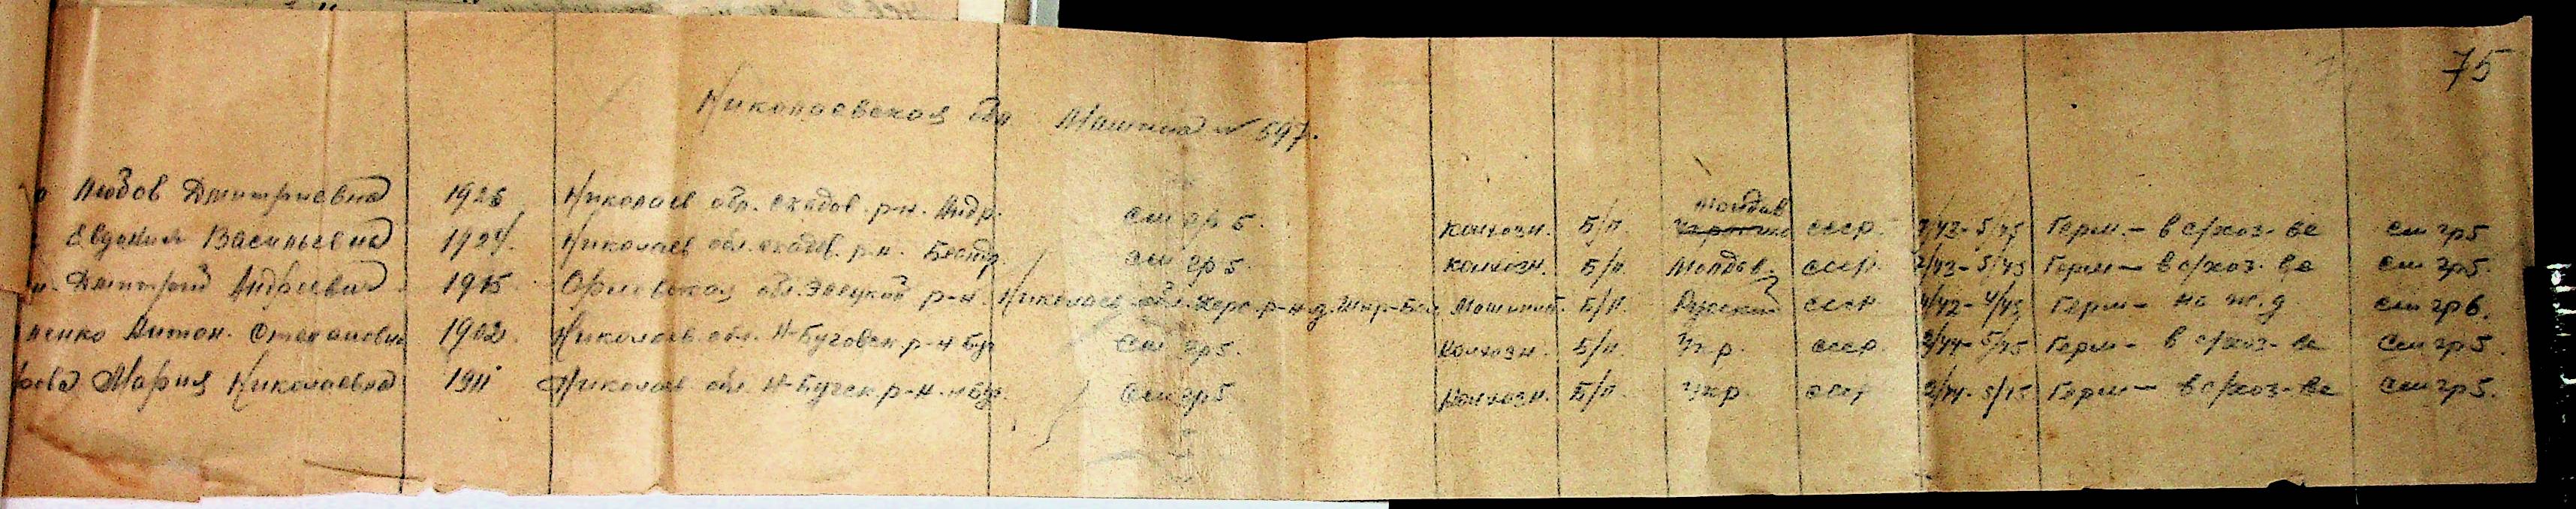 75
Николаевская обл. Машина № 597.
Любов Дмитриевна 1926 Николаев обл. скадов. р-н. Андр. см гр 5. колхозн. Б/п. Молдав ссср. 5/45 Герм. – в с/хоз-ве см гр 5
Евдокия Васильевна 1924. Николаев обл. скадов. р-н. см гр 5. колхозн. Б/п. Молдав. ссср 5/45 Герм – в с/хоз-ве см гр 5.
Дмитрий Андреевич 1915 Орловская обл. р-н. Николаев обл. р-н д. Б/п. Русский ссср 4/42-4/45 Герм – на ж.д см гр 6.
ненко Антон. Степановна 1902. Николаев. обл. Н-Буговск. р-н Буг см гр 5. Колхозн. Б/п. Укр. ссср 3/44-5/45 Герм – в с/хоз-ве см гр 5.
рова Мария Николаевна 1911 Николаев обл. Н-Бугск. р-н. см гр 5 Колхозн. Б/п. Укр. ссср 5/45 Герм – в с/хоз-ве см гр 5.